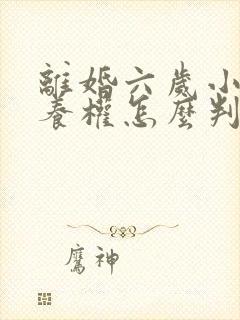 離婚六歲小
養權怎麼判
鷹神